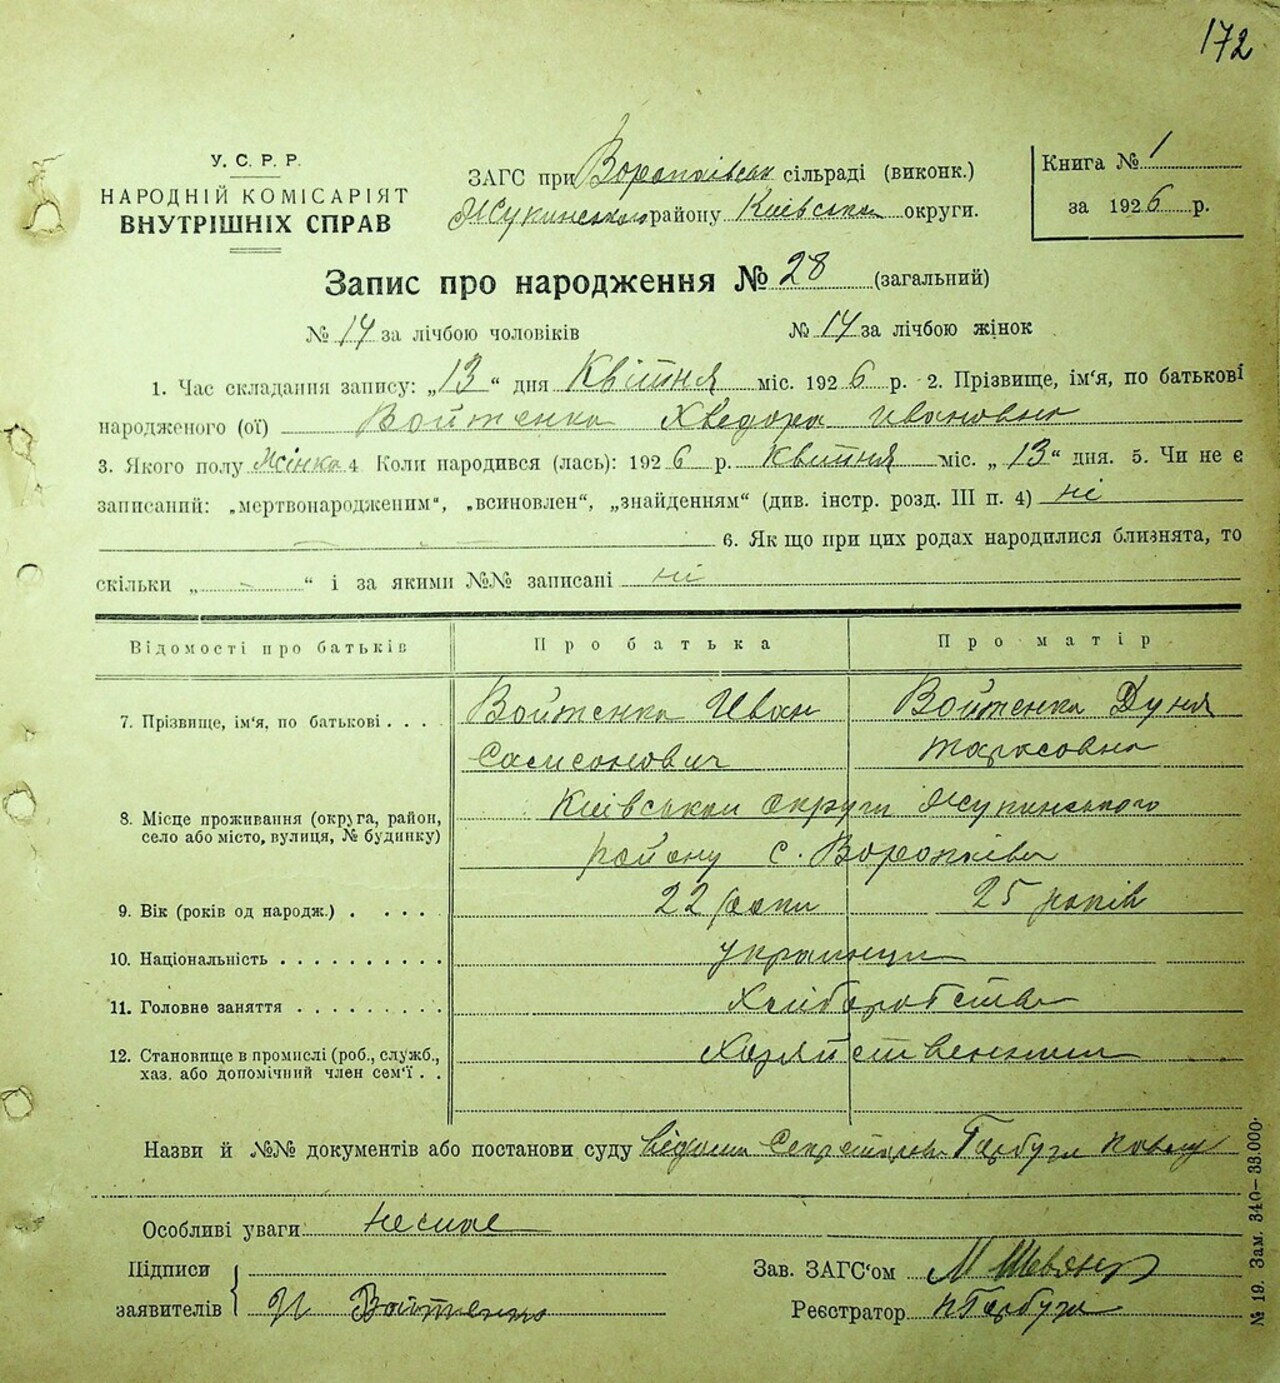 172
У. С. Р. Р.
НАРОДНІЙ КОМІСАРІЯТ
ВНУТРІШНІХ СПРАВ
ЗАГС при Воропаївськ сільраді (виконк.)
Жукинського району Київська округи.
Книга № 1
за 1926 р.
Запис про народження № 28 (загальний)
№ 14 за лічбою чоловіків № 14 за лічбою жінок
1. Час складання запису: „13“ дня Квітня міс. 1926 р. 2. Прізвище, ім‘я, по батькові
народженого (ої) Войтенко Хведора Ивановна
3. Якого полу Жінка 4 Коли народився (лась): 1926 р. Квітня міс. „13“ дня. 5. Чи не є
записаний: „мертвонародженим“, „всиновлен“, „знайденням“ (див. інстр. розд. III п. 4) ні
6. Як що при цих родах народилися близнята, то
скільки „ “ і за якими №№ записані ні
Відомості про батьків Про батька Про матір
7. Прізвище, ім‘я, по батькові . . . . Войтенко Иван Войтенко Дуня
Самсонович Тарасовна
8. Місце проживання (округа, район, Київськои округи Жукинського
село або місто, вулиця, № будинку) району с. Воропаїва
9. Вік (років од народж.) . . . . 22 роки 25 років
10. Національність . . . . . . . . . . украинци
11. Головне заняття . . . . . . . . . Хліборобство
12. Становище в промислі (роб., служб.,
хаз. або допомічний член сем‘ї . .
Назви й №№ документів або постанови суду відоми Секретарев Гарбуза
Особливі уваги Немае
Підписи
заявителів И Войтенко
Зав. ЗАГС‘ом
Реєстратор П Гарбуза
№ 19. Зам. 340—38.000.